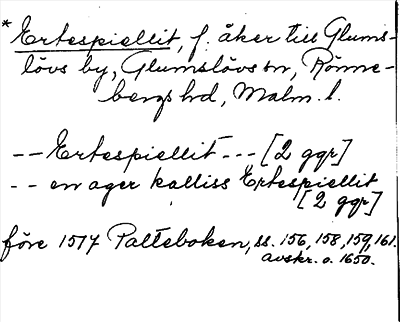 * Ertespiellit, f. åker till Glums-
lövs by, Glumslövs sn, Rönne-
bergs hd, Malm. l.
-- Ertespiellit --- [2 ggr]
-- en ager kalliss Ertespiellit
[2 ggr]
före 1517 Palteboken, ss. 156, 158, 159, 161.
avskr. o. 1650.